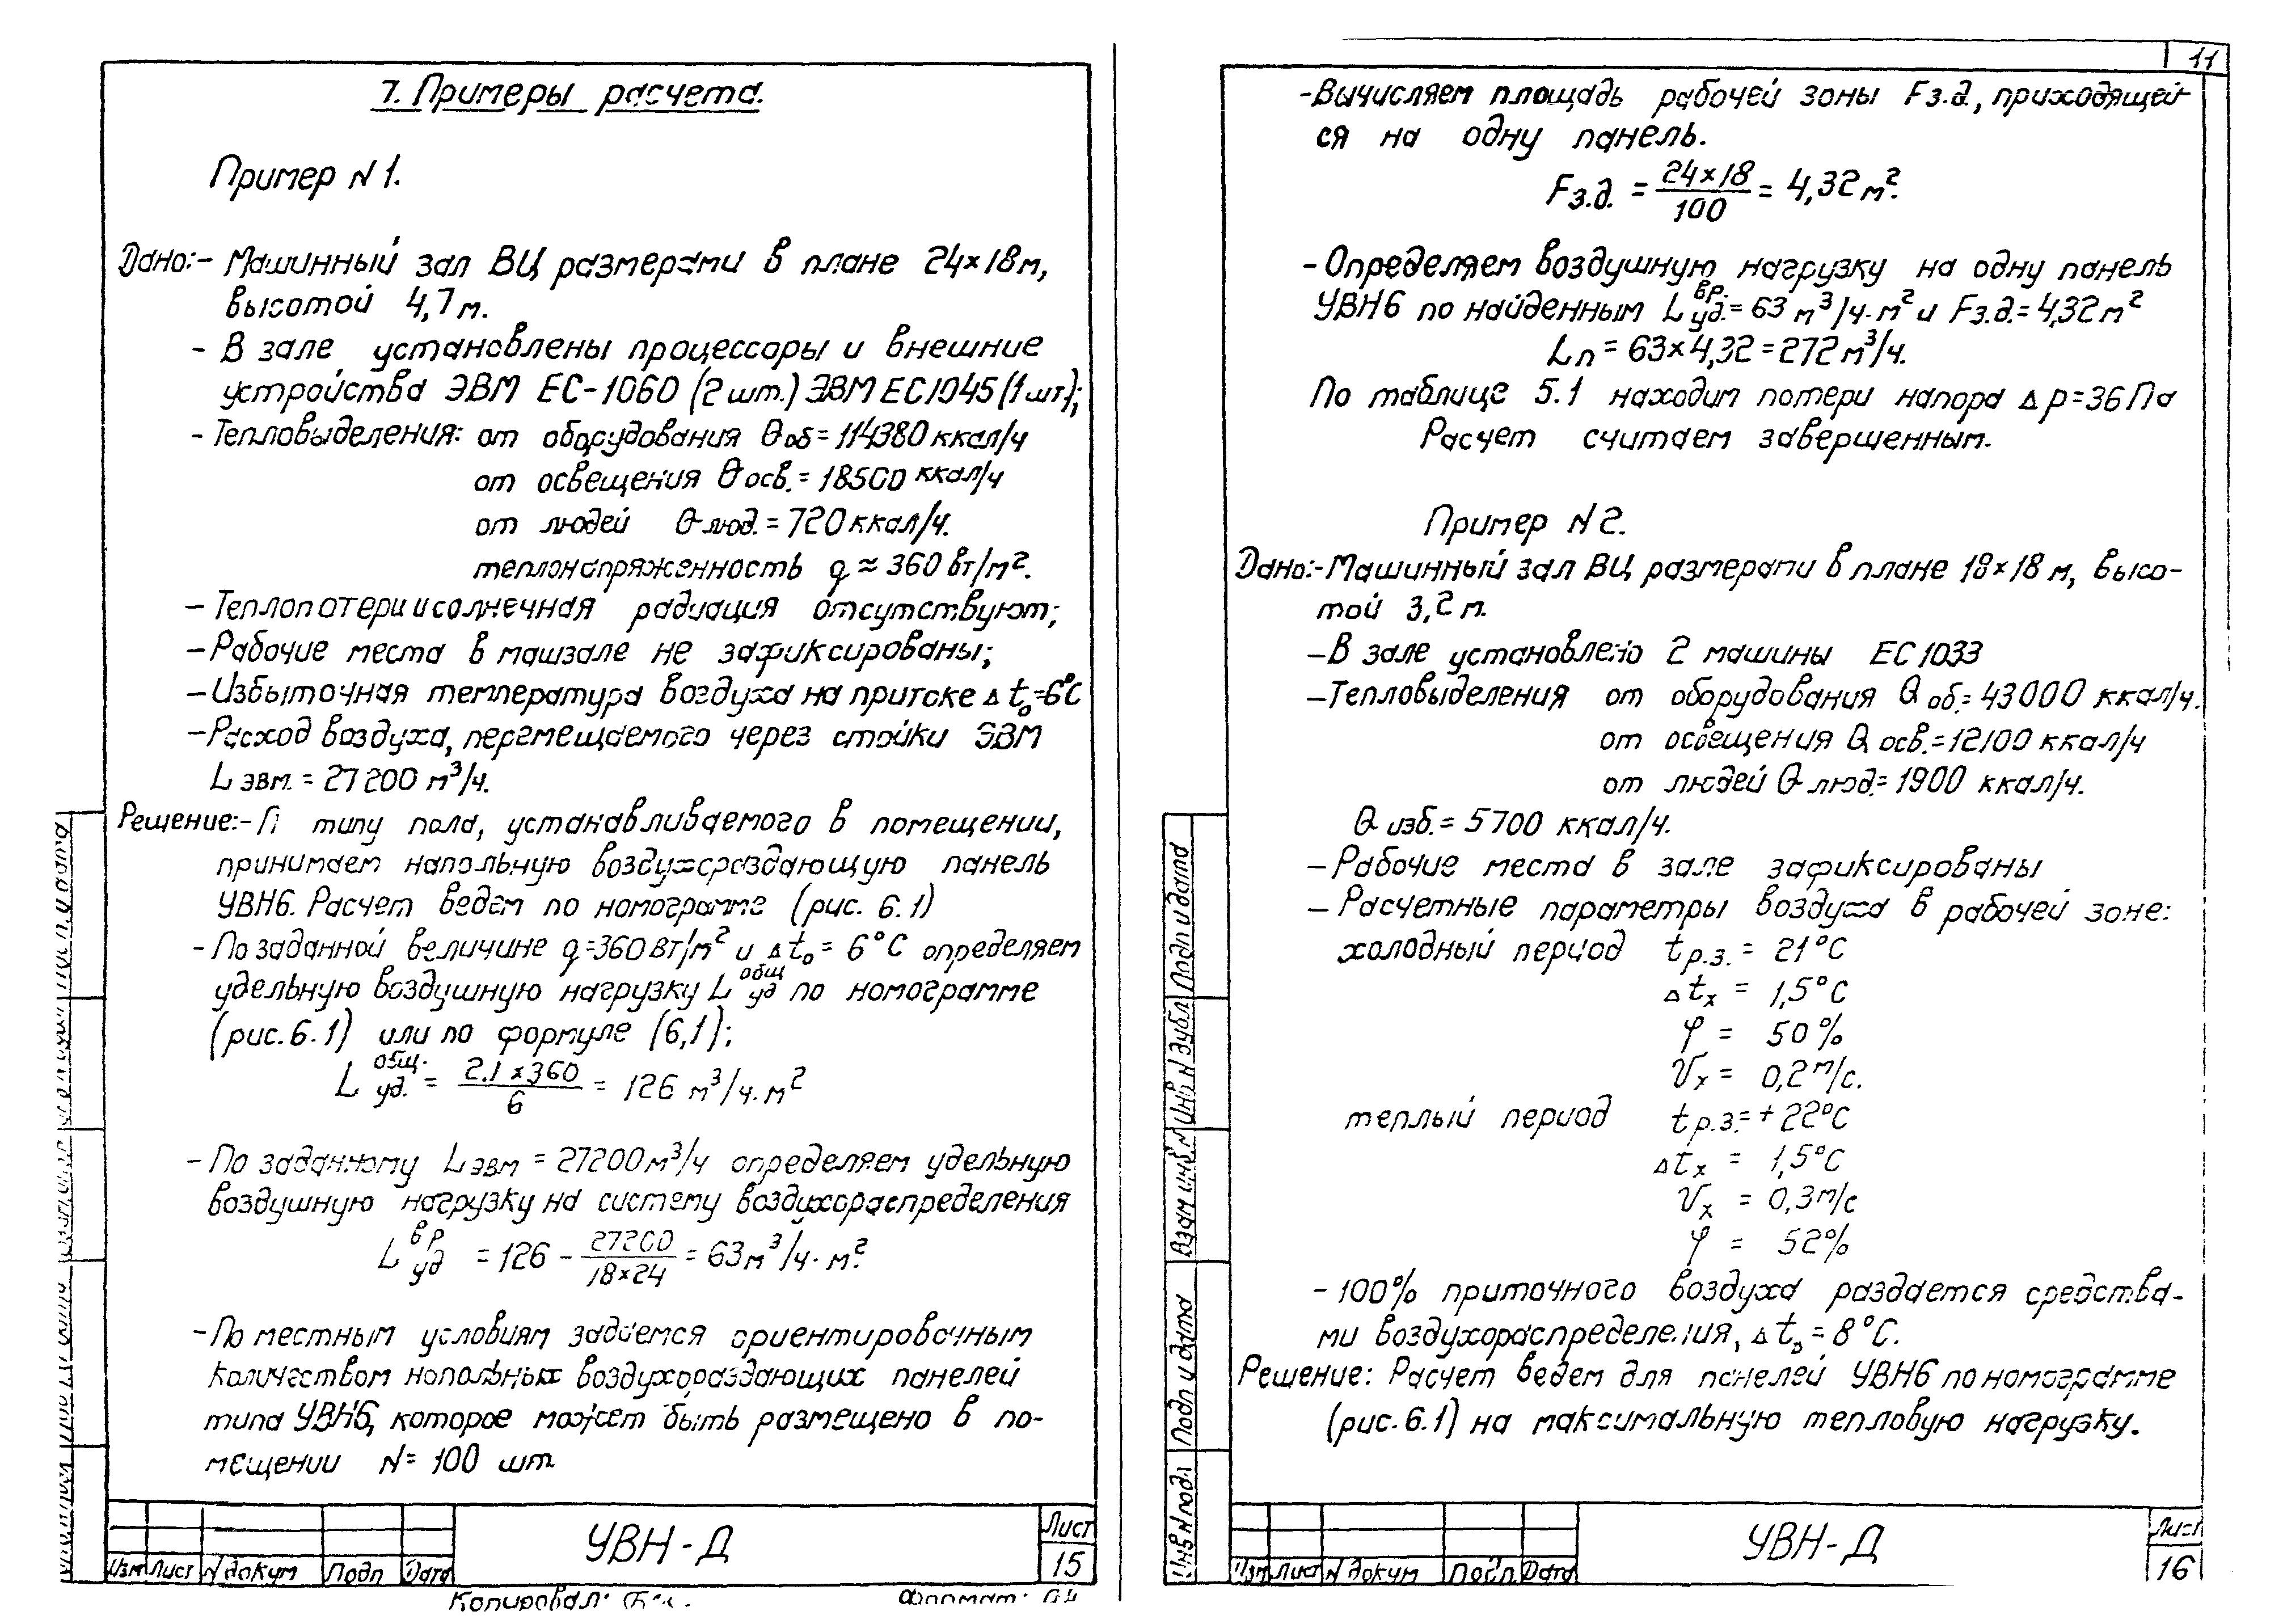 7. Примеры расчета.
Пример N 1.
Дано:- Машинный зал ВЦ размерами в плане 24×18м,
высотой 4,7м.
- В зале установлены процессоры и внешние
устройства ЭВМ ЕС-1060 (2 шт.) ЭВМ ЕС1045 (1 шт);
- Тепловыделения: от оборудования Qоб=114380 ккал/ч
от освещения Qосв.=18500 ккал/ч
от людей Qлюд.=720 ккал/ч.
теплонапряженность q≈360 вт/м².
- Теплопотери и солнечная радиация отсутствуют;
- Рабочие места в машзале не зафиксированы;
- Избыточная температура воздуха на притоке Δt₀=6°С
- Расход воздуха, перемещаемого через стойки ЭВМ
Lэвм.=27200 м³/ч.
Решение:- П типу пола, устанавливаемого в помещении,
принимаем напольную воздухораздающую панель
УВН6. Расчет ведем по номограмме (рис. 6.1)
- По заданной величине q=360Вт/м² и Δt₀=6°С определяем
удельную воздушную нагрузку L общ уд по номограмме
(рис.6.1) или по формуле (6,1);
L общ. уд. = 2.1×360 / 6 = 126 м³/ч.м²
- По заданному Lэвм = 27200м³/ч определяем удельную
воздушную нагрузку на систему воздухораспределения
L вр уд = 126 - 27200 / 18×24 = 63м³/ч.м².
- По местным условиям задаемся ориентировочным
количеством напольных воздухораздающих панелей
типа УВН6, которое может быть размещено в по-
мещении N= 100 шт.
УВН-Д
Лист
15
Изм Лист N докум Подп Дата
Копировал:
Формат:
11
-Вычисляем площадь рабочей зоны Fз.д., приходящей-
ся на одну панель.
Fз.д. = 24×18 / 100 = 4,32м².
-Определяем воздушную нагрузку на одну панель
УВН6 по найденным L вр. уд.=63 м³/ч.м² и Fз.д.=4,32м²
Lп = 63×4,32=272м³/ч.
По таблице 5.1 находим потери напора Δp=36Па
Расчет считаем завершенным.
Пример N 2.
Дано:-Машинный зал ВЦ размерами в плане 18×18 м, высо-
той 3,2м.
-В зале установлено 2 машины ЕС1033
-Тепловыделения от оборудования Qоб.=43000 ккал/ч.
от освещения Qосв.=12100 ккал/ч
от людей Qлюд.=1900 ккал/ч.
Qизб.=5700 ккал/ч.
- Рабочие места в зале зафиксированы
- Расчетные параметры воздуха в рабочей зоне:
холодный период tр.з. = 21°С
Δtх = 1,5°С
φ = 50%
Vх = 0,2м/с.
теплый период tр.з.=+22°С
Δtх = 1,5°С
Vх = 0,3м/с
φ = 52%
- 100% приточного воздуха раздается средства-
ми воздухораспределения, Δt₀=8°С.
Решение: Расчет ведем для панелей УВН6 по номограмме
(рис.6.1) на максимальную тепловую нагрузку.
Подп и дата
Инв N дубл
Взам инв N
Подп и дата
Инв N подл
УВН-Д
Лист
16
Изм Лист N докум Подп Дата